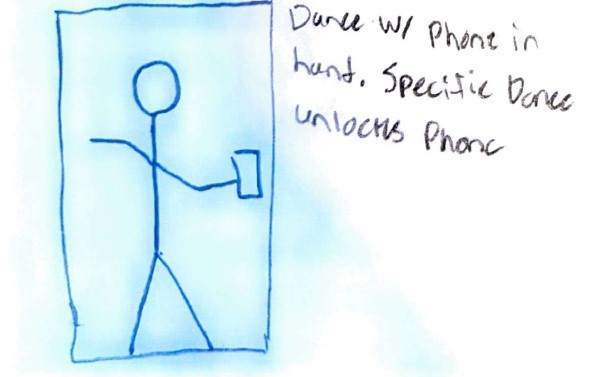 Dance w/ Phone in
hand. Specific Dance
unlocks Phone